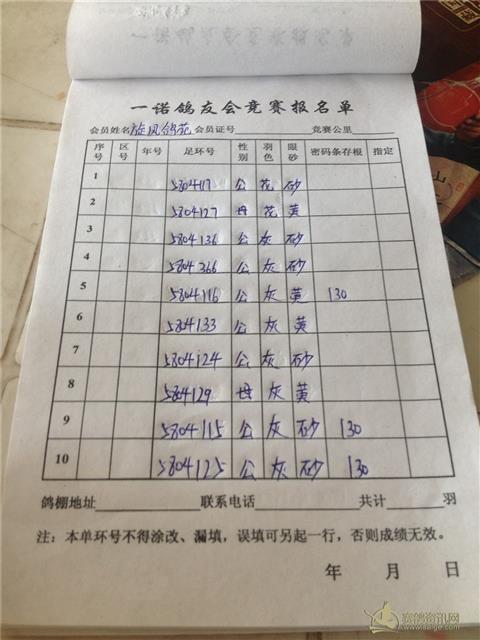 一诺鸽友会竞赛报名单
会员姓名 旋风鸽苑 会员证号 竞赛公里
序号 区号 年号 足环号 性别 羽色 眼砂 密码条存根 指定
1 5804117 公 花 砂
2 5804127 母 花 黄
3 5804136 公 灰 砂
4 5804366 公 灰 砂
5 5804116 公 灰 黄 130
6 5804133 公 灰 黄
7 5804124 公 灰 砂
8 5804129 母 灰 黄
9 5804115 公 灰 砂 130
10 5804125 公 灰 砂 130
鸽棚地址 联系电话 共计 羽
注：本单环号不得涂改、漏填，误填可另起一行，否则成绩无效。
年 月 日
赛鸽资讯网